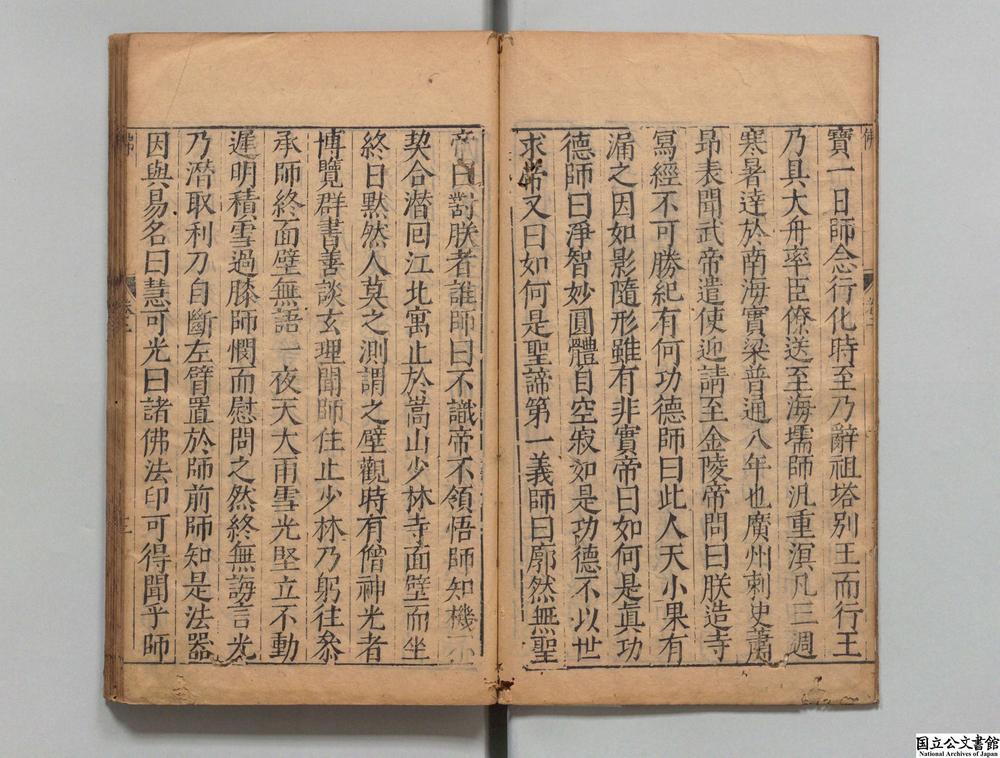 寶一日師念行化時至乃辭祖塔別王而行王
乃具大舟率臣僚送至海壖師汎重溟凡三週
寒暑達於南海實梁普通八年也廣州刺史蕭
昂表聞武帝遣使迎請至金陵帝問曰朕造寺
寫經不可勝紀有何功德師曰此人天小果有
漏之因如影隨形雖有非實帝曰如何是真功
德師曰淨智妙圓體自空寂如是功德不以世
求帝又曰如何是聖諦第一義師曰廓然無聖
帝曰對朕者誰師曰不識帝不領悟師知機不
契合潛回江北寓止於嵩山少林寺面壁而坐
終日默然人莫之測謂之壁觀時有僧神光者
博覽群書善談玄理聞師住止少林乃躬往叅
承師終面壁無語一夜天大雨雪光堅立不動
遲明積雪過膝師憫而慰問之然終無誨言光
乃潛取利刀自斷左臂置於師前師知是法器
因與易名曰慧可光曰諸佛法印可得聞乎師
佛
三
国立公文書館
National Archives of Japan